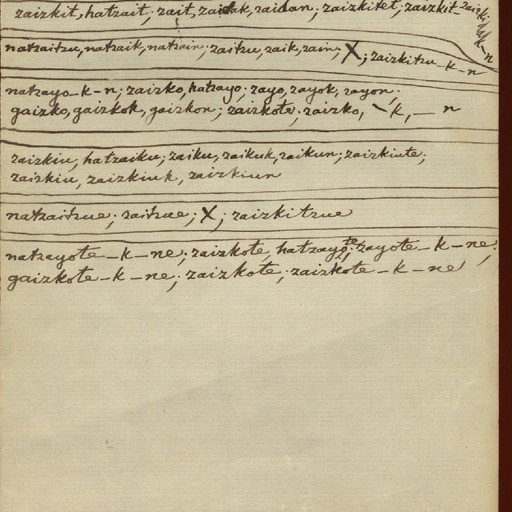 zaizkit, hatzait, zait, zaidak, zaidan; zaizkitet; zaizkit zaizkidak-n
natzaitzu, natzaik, natzain; zaitzu, zaik, zain; X; zaizkitzu-k-n
natzayo-k-n; zaizko, hatzayo; zayo, zayok, zayon;
gaizko, gaizkok, gaizkon; zaizkote; zaizko, -k, - n
zaizkiu, hatzaiku; zaiku, zaikuk, zaikun; zaizkiute;
zaizkiu, zaizkiuk, zaizkiun
natzaitzue; zaitzue; X; zaizkitzue
natzayote-k-ne; zaizkote, hatzayote; zayote-k-ne;
gaizkote-k-ne; zaizkote; zaizkote-k-ne